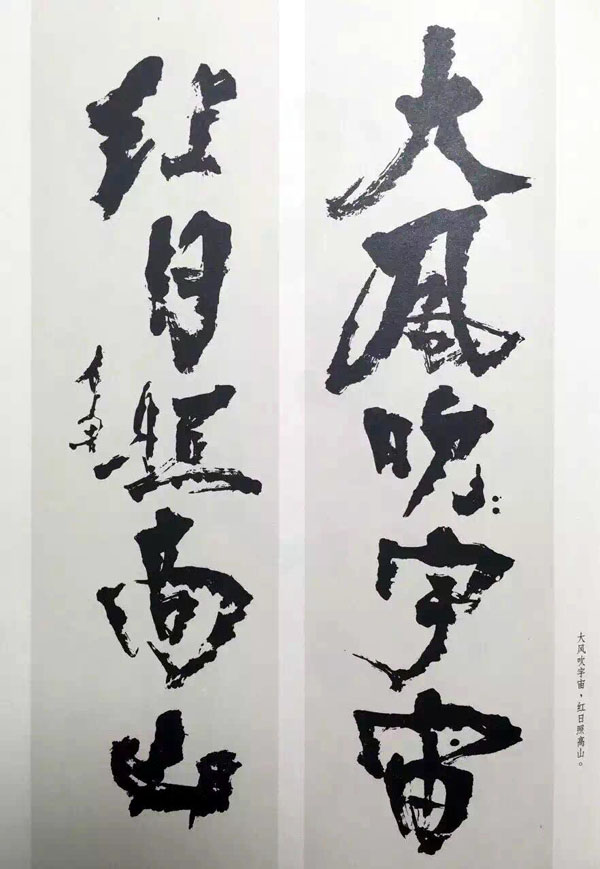 大風吹宇宙
红日照高山
大风吹宇宙，红日照高山。